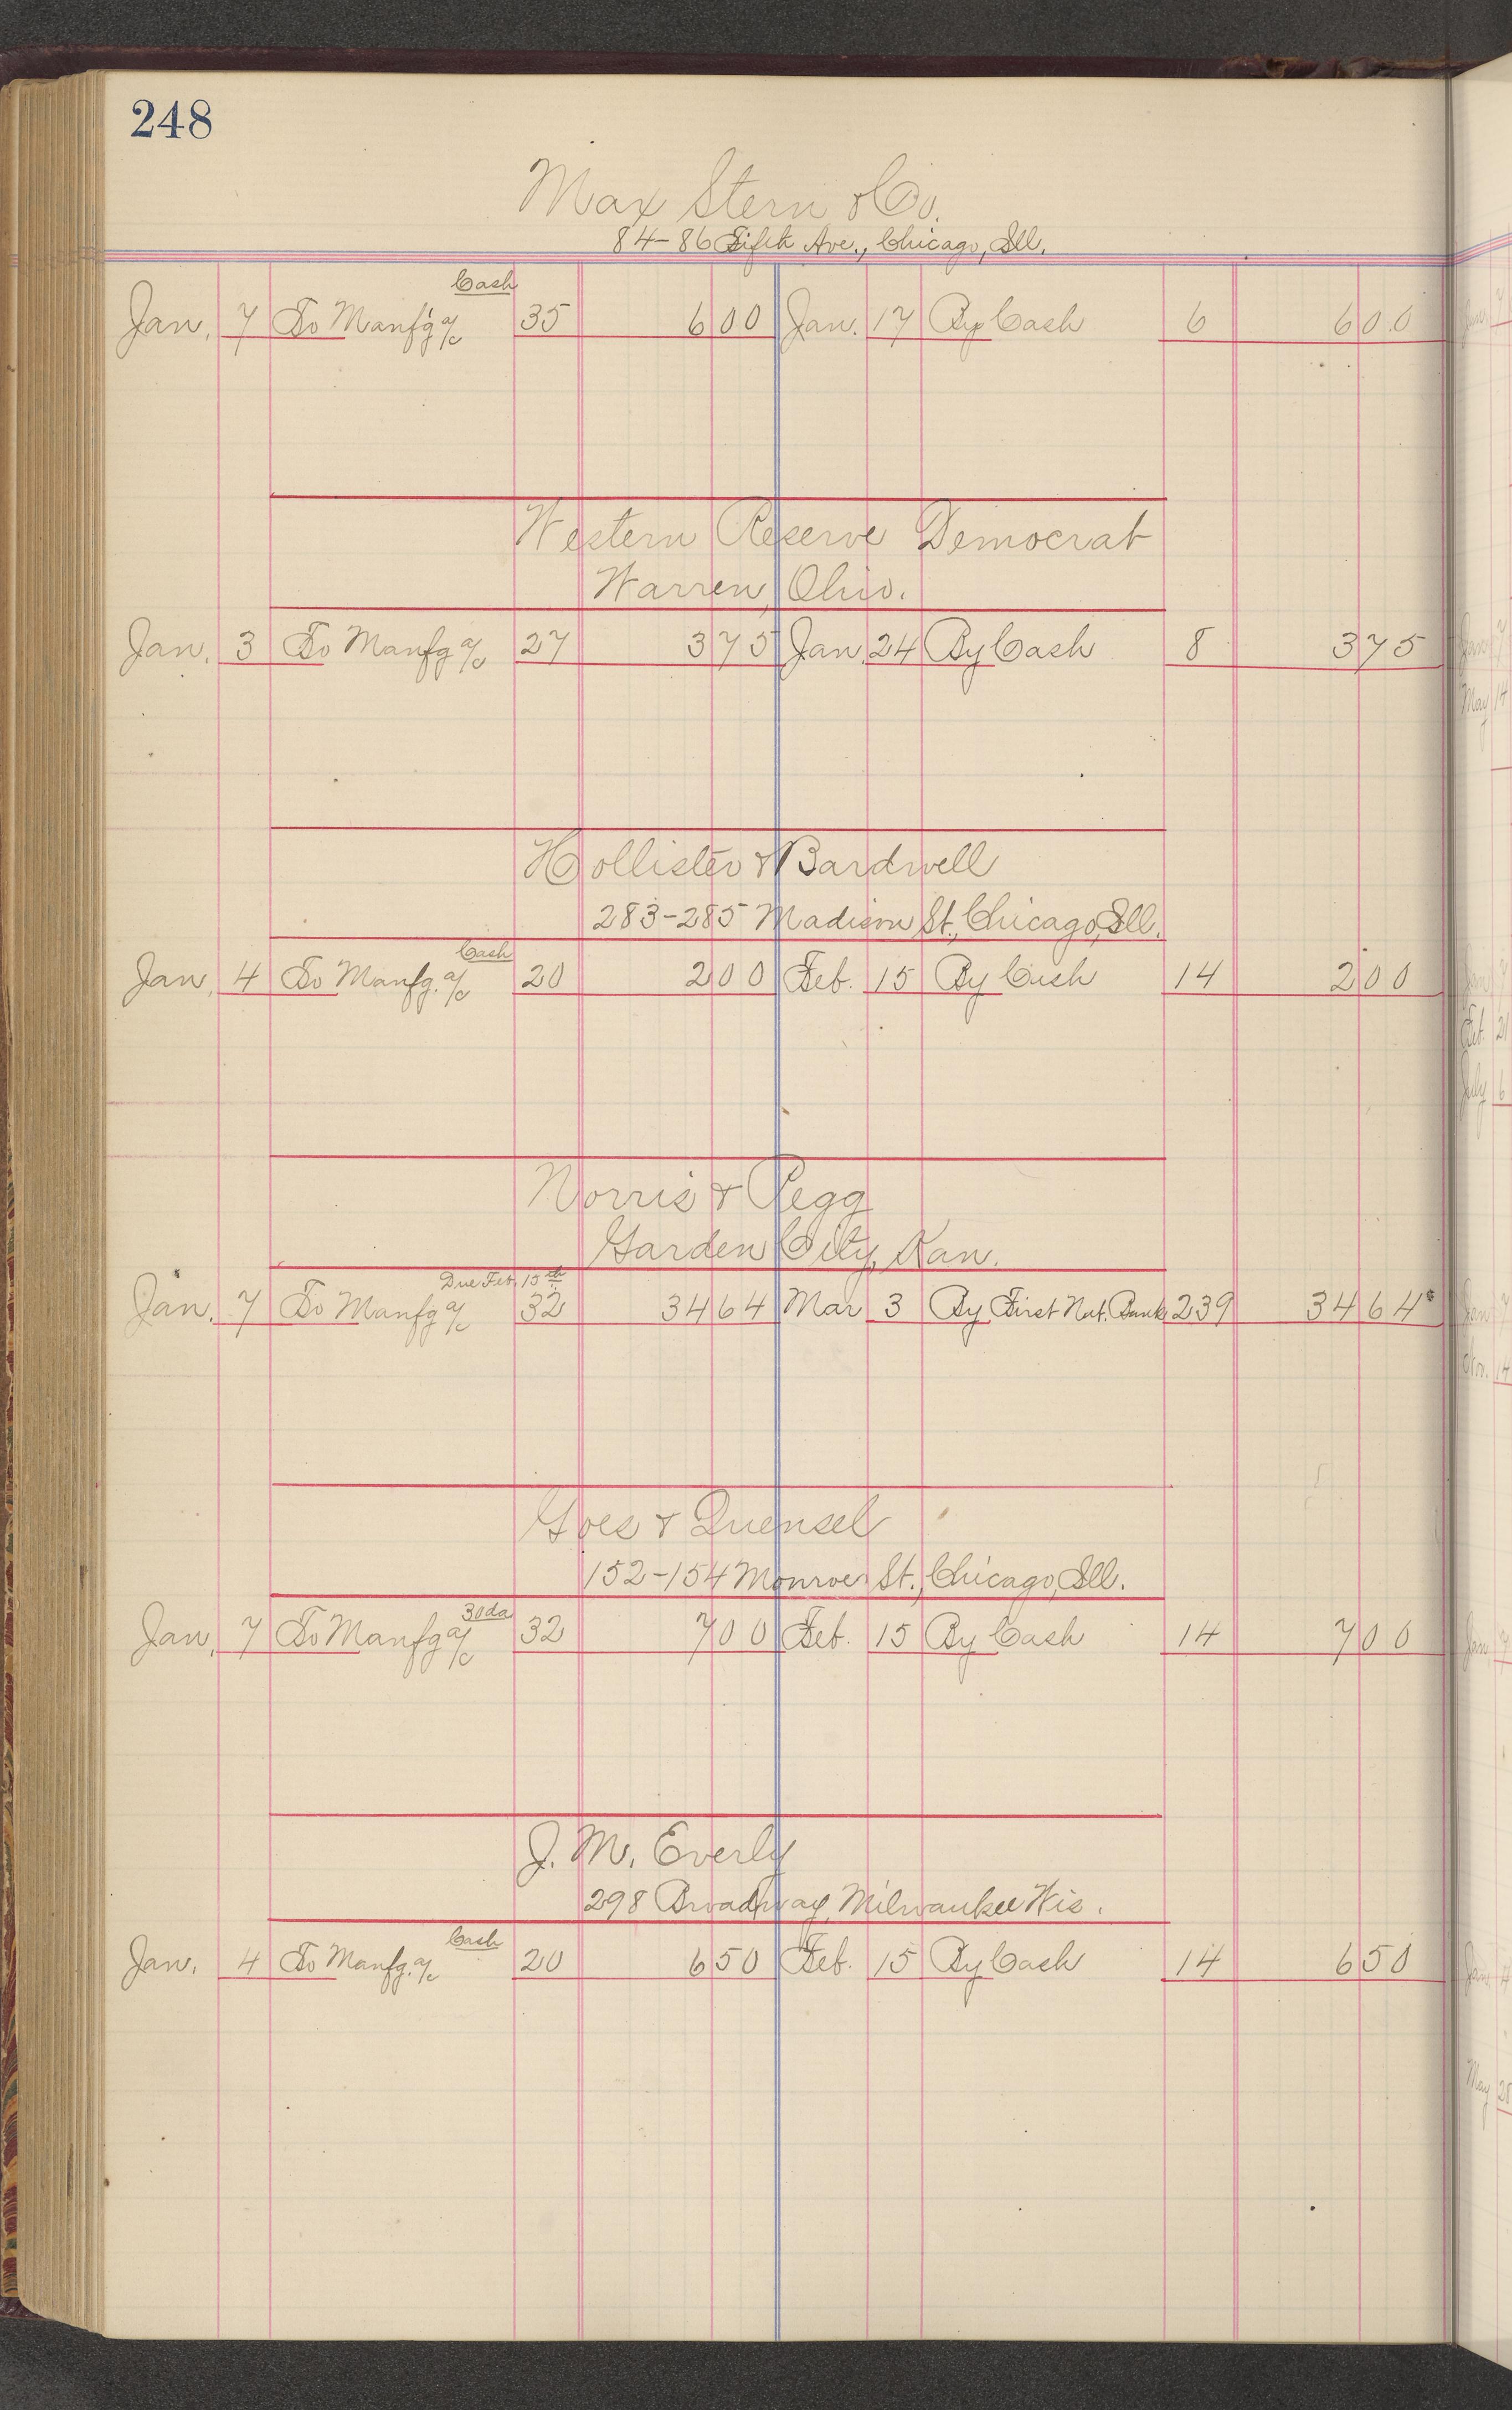 248
Max Stern & Co.
84-86 Fifth Ave., Chicago, Ill.
Cash
Jan. 7 To Manf'g a/c 35 6 00 Jan. 17 By Cash 6 6 00
Western Reserve Democrat
Warren, Ohio.
Jan. 3 To Manfg a/c 27 3 75 Jan. 24 By Cash 8 3 75
Hollister & Bardwell
283-285 Madison St., Chicago, Ill.
Cash
Jan. 4 To Manfg. a/c 20 2 00 Feb. 15 By Cash 14 2 00
Norris & Pegg
Garden City, Kan.
Due Feb. 15th
Jan. 7 To Manfg a/c 32 34 64 Mar 3 By First Nat. Bank 239 34 64
Goes & Quensel
152-154 Monroe St., Chicago, Ill.
30 da
Jan. 7 To Manfg a/c 32 7 00 Feb. 15 By Cash 14 7 00
J. M. Everly
298 Broadway, Milwaukee Wis.
Cash
Jan. 4 To Manfg. a/c 20 6 50 Feb. 15 By Cash 14 6 50